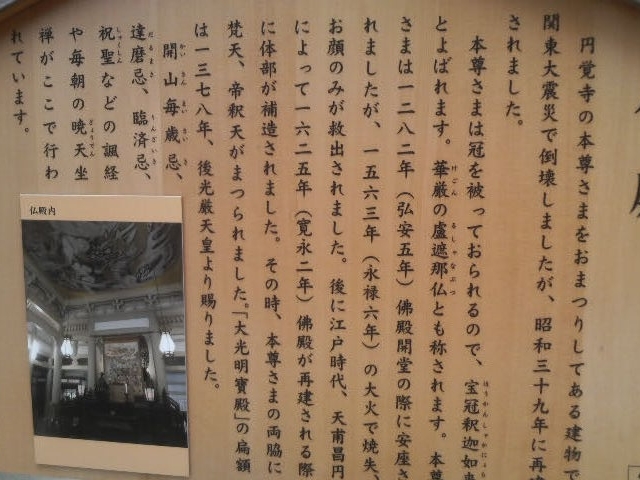 円覚寺の本尊さまをおまつりしてある建物で
関東大震災で倒壊しましたが、昭和三十九年に再
されました。
本尊さまは冠を被っておられるので、宝冠釈迦如
とよばれます。華厳の盧遮那仏とも称されます。本
さまは一二八二年（弘安五年）佛殿開堂の際に安座さ
れましたが、一五六三年（永禄六年）の大火で焼失、
お顔のみが救出されました。後に江戸時代、天甫昌円
によって一六二五年（寛永二年）佛殿が再建される際
に体部が補造されました。その時、本尊さまの両脇に
梵天、帝釈天がまつられました。「大光明寶殿」の扁額
は一三七八年、後光厳天皇より賜りました。
開山毎歳忌、
達磨忌、臨済忌、
祝聖などの諷経
や毎朝の暁天坐
禅がここで行わ
れています。
仏殿内